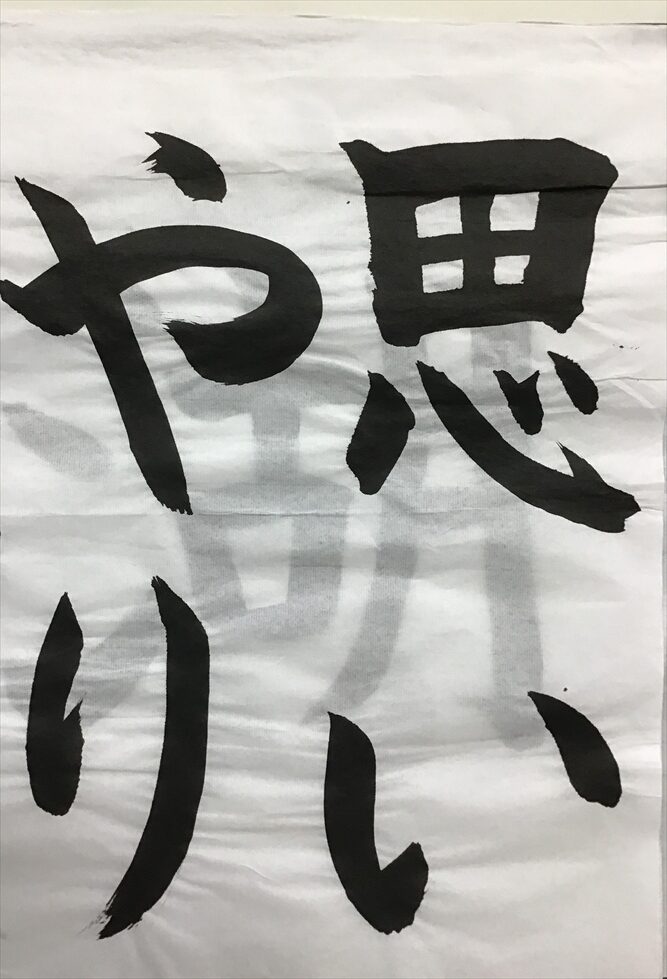 思い
やり